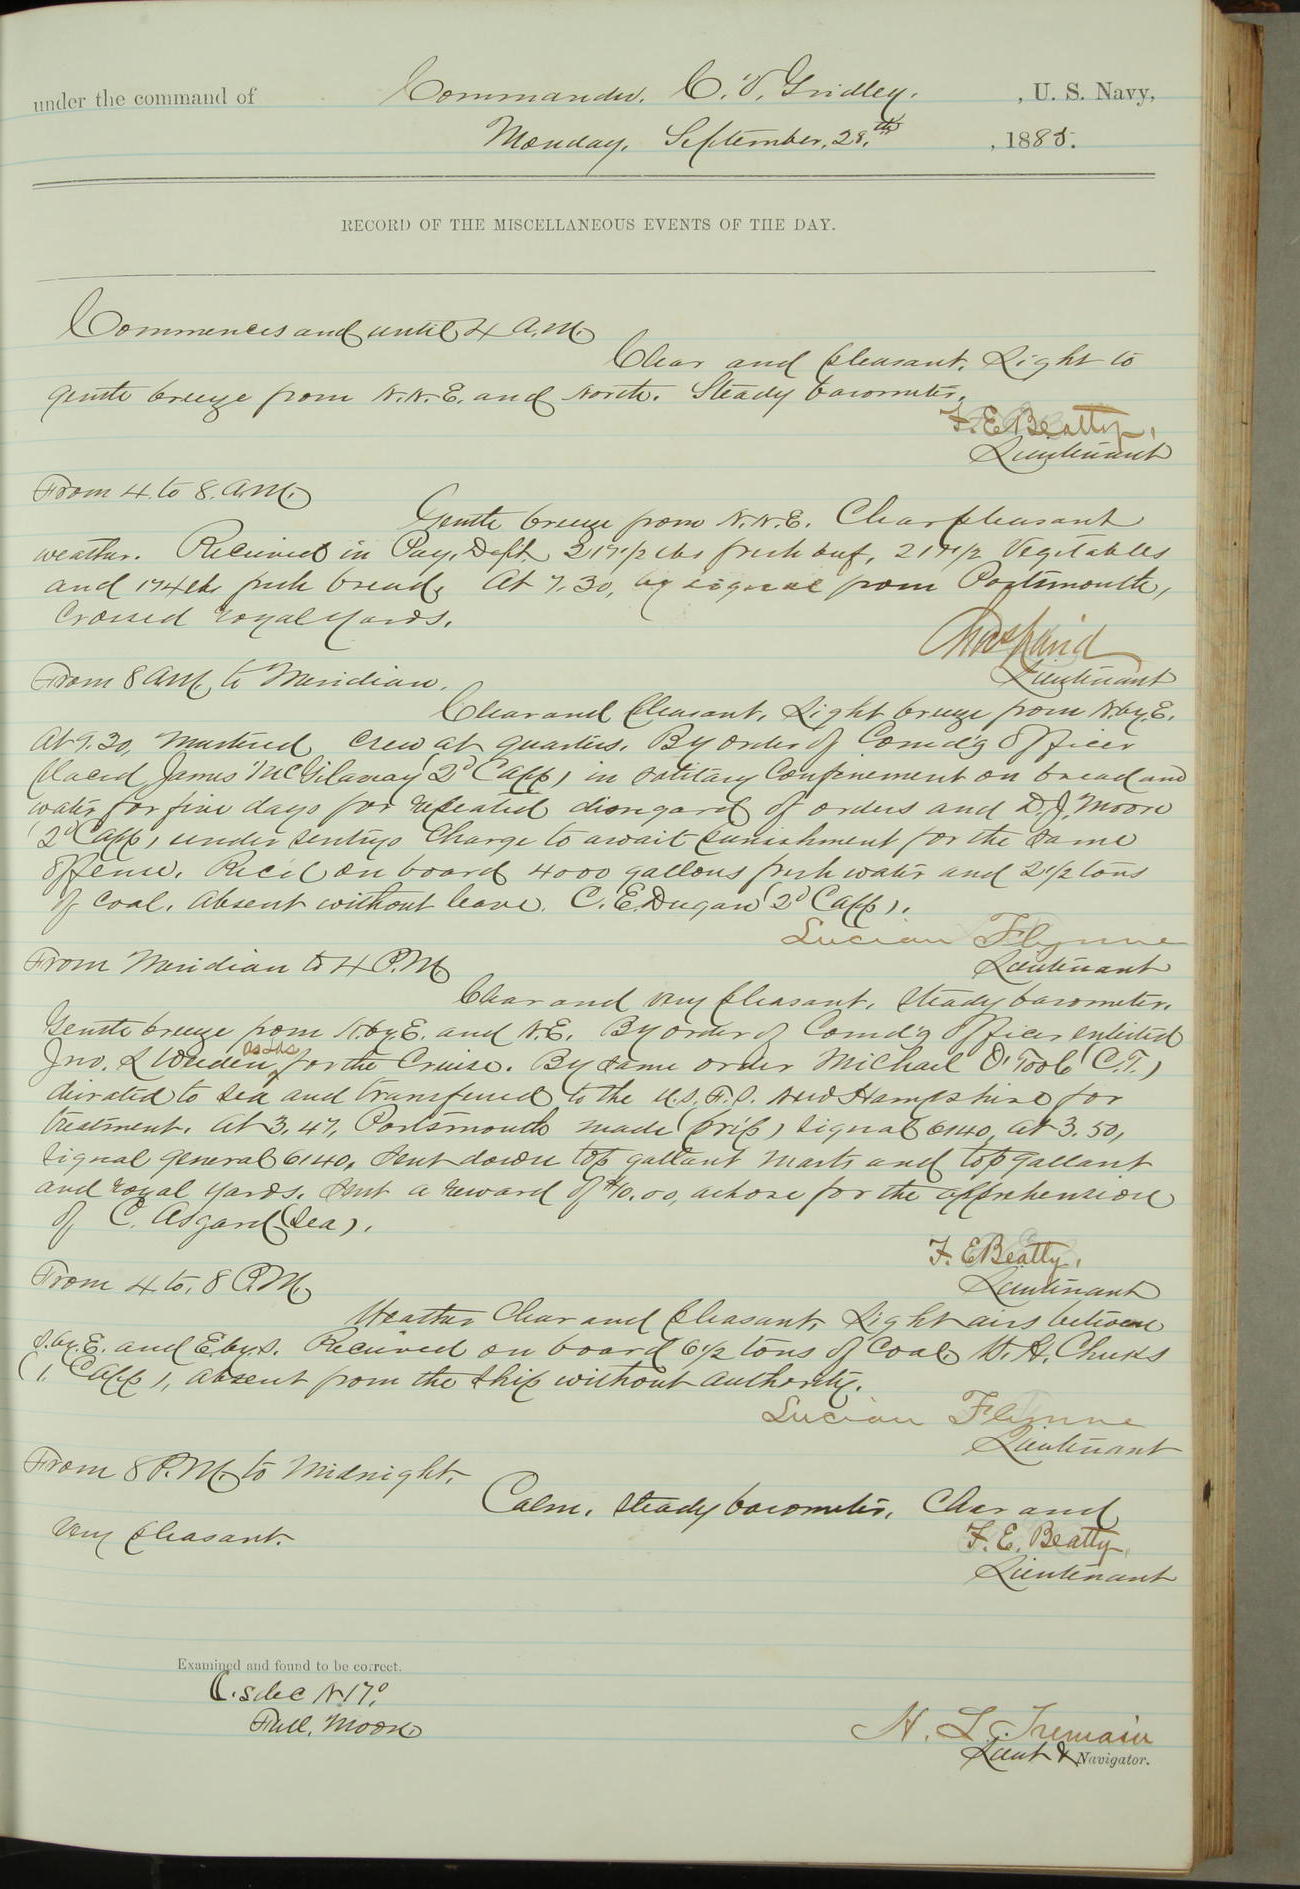 under the command of Commander. C. V. Gridley. , U. S. Navy,
Monday, September, 28,th , 1885.
RECORD OF THE MISCELLANEOUS EVENTS OF THE DAY.
Commences and until 4 A.M.
Clear and pleasant. Light to
gentle breeze from N.N.E. and North. Steady barometer.
F. E. Beatty,
Lieutenant
From 4 to 8. A.M.
Gentle breeze from N.N.E. Clear pleasant
weather. Received in Pay. Dept. 217 1/2 lbs fresh beef, 217 1/2 Vegetables
and 174 lbs fresh bread. At 7.30, by signal from Portsmouth,
crossed royal yards.
Lieutenant
From 8 A.M. to Meridian.
Clear and pleasant. Light breeze from N.by.E.
At 9.30, mustered crew at quarters. By order of Comd'g Officer
placed James McGilaway (2d C App) in solitary confinement on bread and
water for five days for repeated disregard of orders and D. J. Moore
(2d C App) under sentrys charge to await punishment for the same
offense. Rec'd on board 4000 gallons fresh water and 2 1/2 tons
of coal. Absent without leave. C. E. Dugan (2d C App).
Lucian Flynne
Lieutenant
From Meridian to 4 P.M.
Clear and very pleasant. Steady barometer.
Gentle breeze from N.by.E. and N.E. By order of Comd'g Officer enlisted
Jno. L as Lds for the Cruise. By same order Michael O'Toole (C.T.)
disrated to Sea and transferred to the U.S.F.S. New Hampshire for
treatment. At 3.47, Portsmouth made (prep) signal 6140, at 3.50,
signal general 6140. Sent down top gallant masts and top gallant
and royal yards. Sent a reward of $10.00, ashore for the apprehension
of C. Asgard (Sea).
F. E Beatty,
Lieutenant
From 4 to. 8 P.M.
Weather Clear and pleasant. Light airs between
S.by.E. and E.by.S. Received on board 6 1/2 tons of Coal. W. H. Cheeks
(1. C App), absent from the ship without authority.
Lucian Flynne
Lieutenant
From 8 P.M. to Midnight.
Calm. Steady barometer. Clear and
very pleasant.
F. E. Beatty,
Lieutenant
Examined and found to be correct.
N 17°
Full. Moon.
H. L. Tremain
Lieut & Navigator.